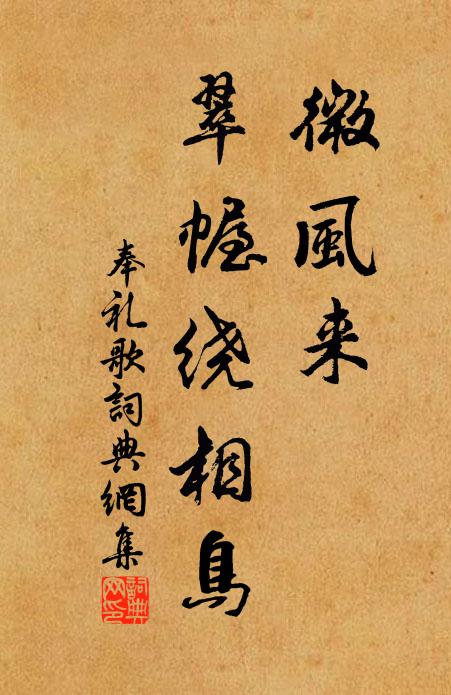 微風来
翠幄绕相烏
奉礼歌詞典網集
詞典
网印